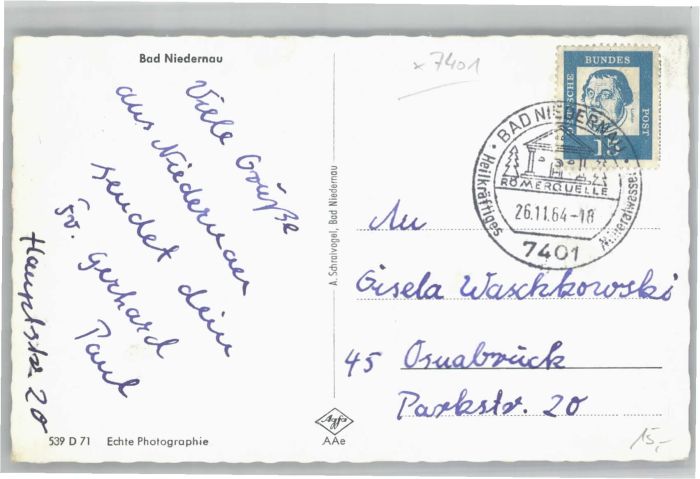 Bad Niedernau
Viele Grüße
aus Niedernau
sendet dein
Gerhard
Paul
Hauptstr. 20
539 D 71 Echte Photographie
A. Schraivogel, Bad Niedernau
Agfa
AAe
x 7401
DEUTSCHE BUNDES POST
15
BAD NIEDERNAU
Heilkräftiges Mineralwasser
RÖMERQUELLE
26.11.64-18
7401
An
Gisela Waschkowski
45 Osnabrück
Parkstr. 20
15,-